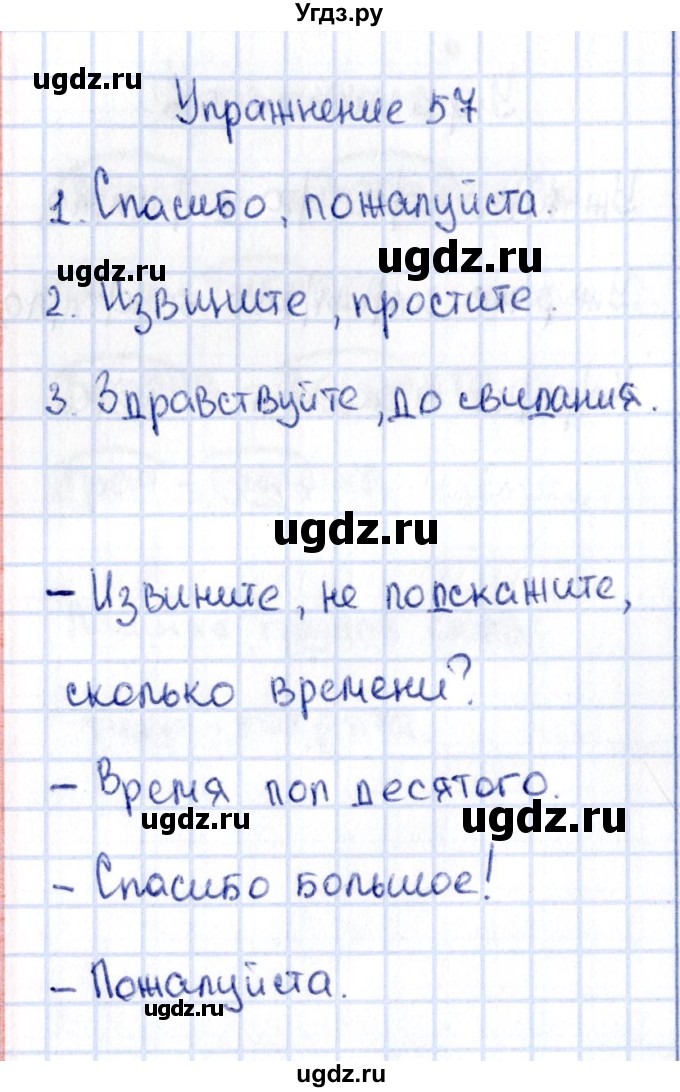 Угдз.ру
ugdz.ru
Упражнение 57
1. Спасибо, пожалуйста.
ugdz.ru
ugdz.ru
2. Извините, простите.
3. Здравствуйте, до свидания.
ugdz.ru
- Извините, не подскажите,
сколько времени?
- Время пол десятого.
ugdz.ru
ugdz.ru
- Спасибо большое!
- Пожалуйста.
ugdz.ru
ugdz.ru